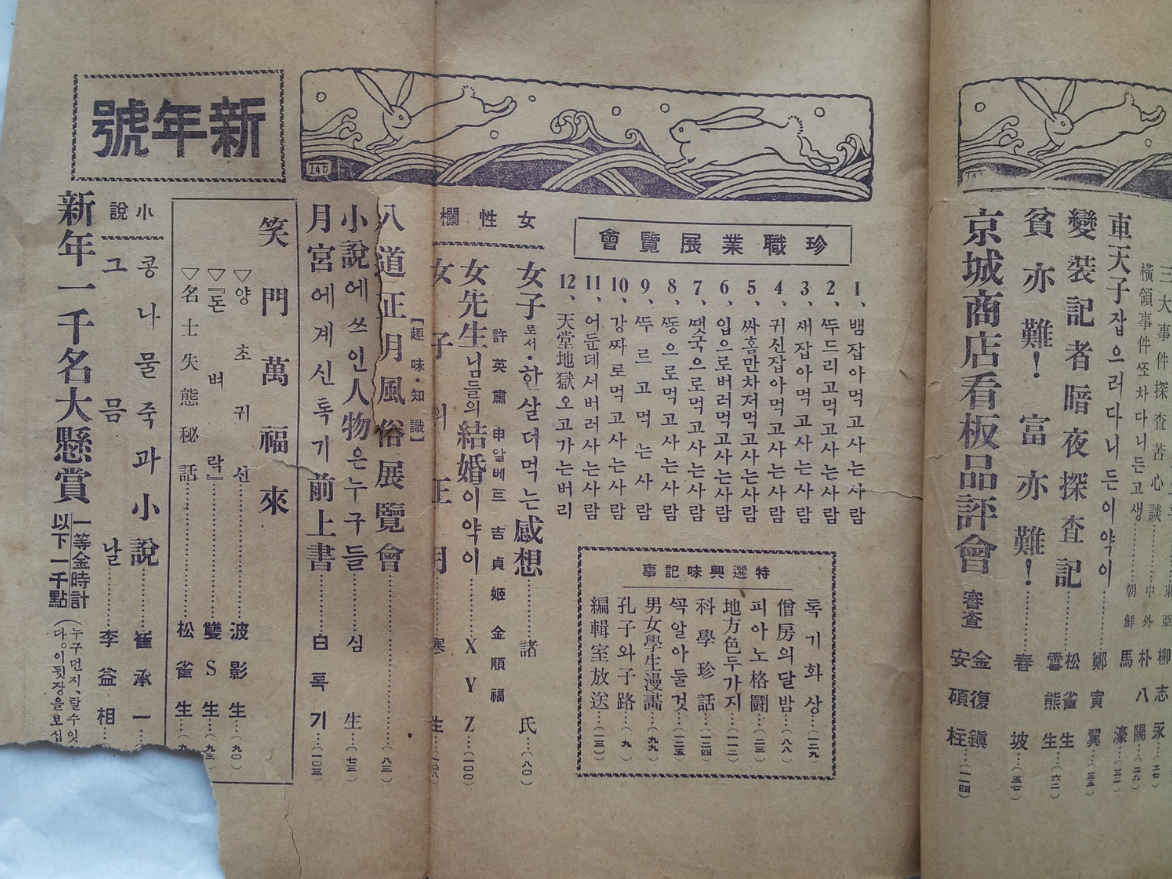 三大事件探査苦心談
橫領事件쪼차다니든고생……朝鮮 馬濠
車天子잡으러다니든이약이……鄭寅翼
變裝記者暗夜探査記……松雀生
雲熊生
貧亦難! 富亦難!……春坡
京城商店看板品評會 審査 金復鎭
安碩柱
珍職業展覽會
1、뱀잡아먹고사는사람
2、뚜드리고먹고사는사람
3、새잡아먹고사는사람
4、귀신잡아먹고사는사람
5、싸홈만차저먹고사는사람
6、입으로버러먹고사는사람
7、땟국으로먹고사는사람
8、똥으로먹고사는사람
9、뚜르고먹는사람
10、강짜로먹고사는사람
11、어둔데서버러사는사람
12、天堂地獄오고가는버리
特選興味記事
톡기화상……(一二九)
僧房의달밤……(八八)
피아노格鬪……(二三)
地方色두가지……(一二)
科學珍話……(一二四)
꼭알아둘것……
男女學生漫畵……(九九)
孔子와子路……(九)
編輯室放送……
女性欄
女子로서·한살더먹는感想……諸氏……(八〇)
許英肅 申알베트 吉貞姬 金順福
女先生님들의結婚이약이……XYZ……(一〇〇)
女子의正月
【趣味·知識】
八道正月風俗展覽會……(八三)
小說에쓰인人物은누구들……심生……(七三)
月宮에계신톡기前上書……白톡기……(一〇三)
笑門萬福來
▽양초귀신……波影生……(九〇)
▽『돈벼락』……雙S生
▽名士失態秘話……松雀生
小說
콩나물죽과小說……崔承一
그믐날……李益相
新年一千名大懸賞 一等金時計
以下一千點
新年號